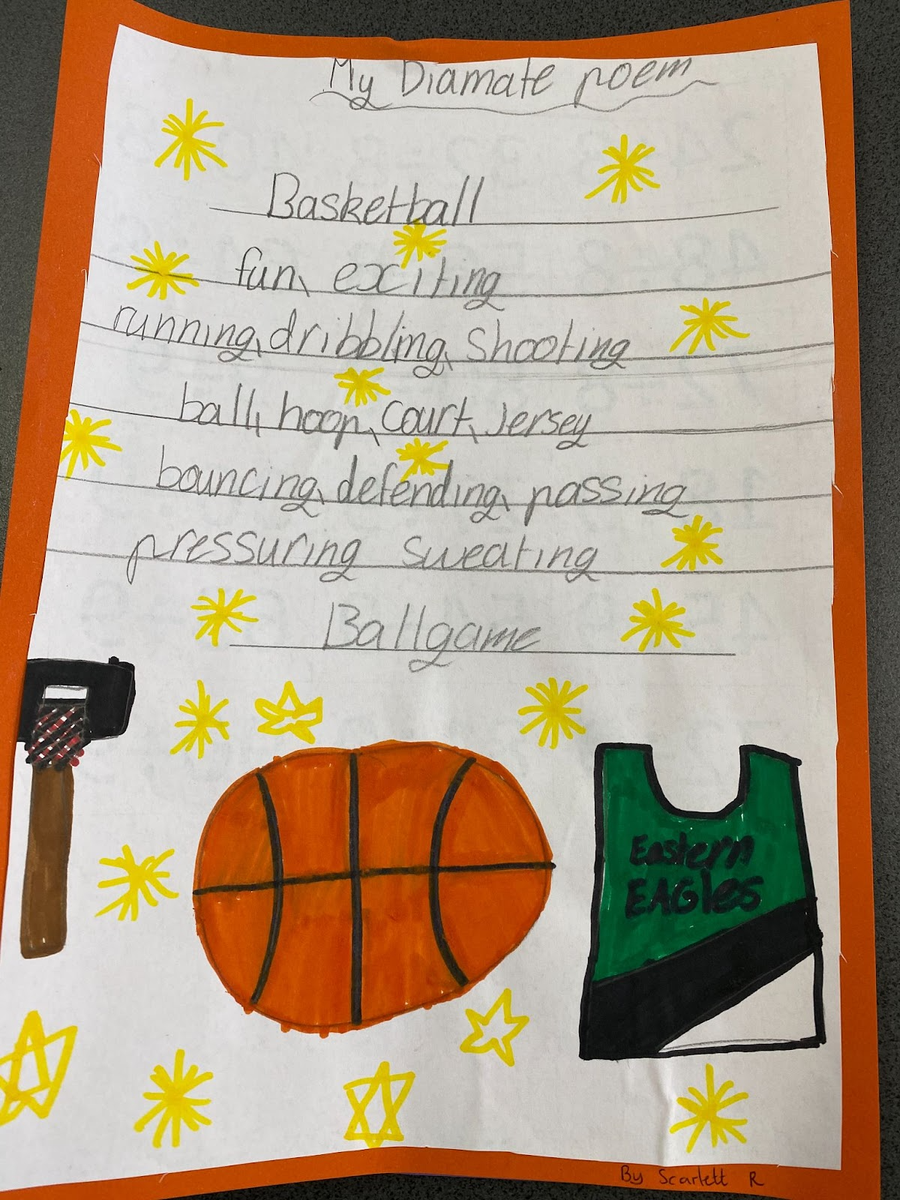 My Diamate poem
Basketball
fun, exciting
running, dribbling, shooting
ball, hoop, court, Jersey
bouncing, defending, passing
pressuring sweating
Ballgame
Eastern
EAGles
By Scarlett R